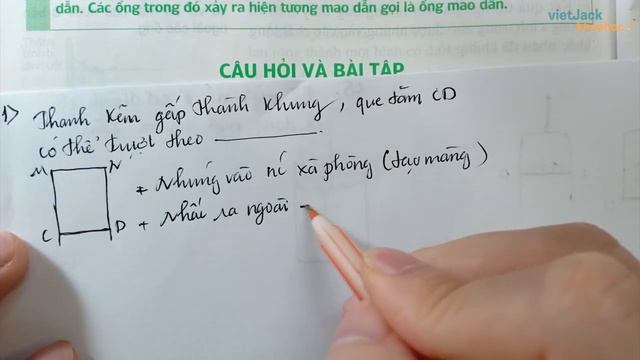 dẫn. Các ống trong đó xảy ra hiện tượng mao dẫn gọi là ống mao dẫn.
vietJack
CÂU HỎI VÀ BÀI TẬP
1) Thanh kẽm gấp thành khung, que tăm CD
có thể trượt theo
M N
+ Nhúng vào nc xà phòng (tạo màng)
C D + Nhấc ra ngoài -